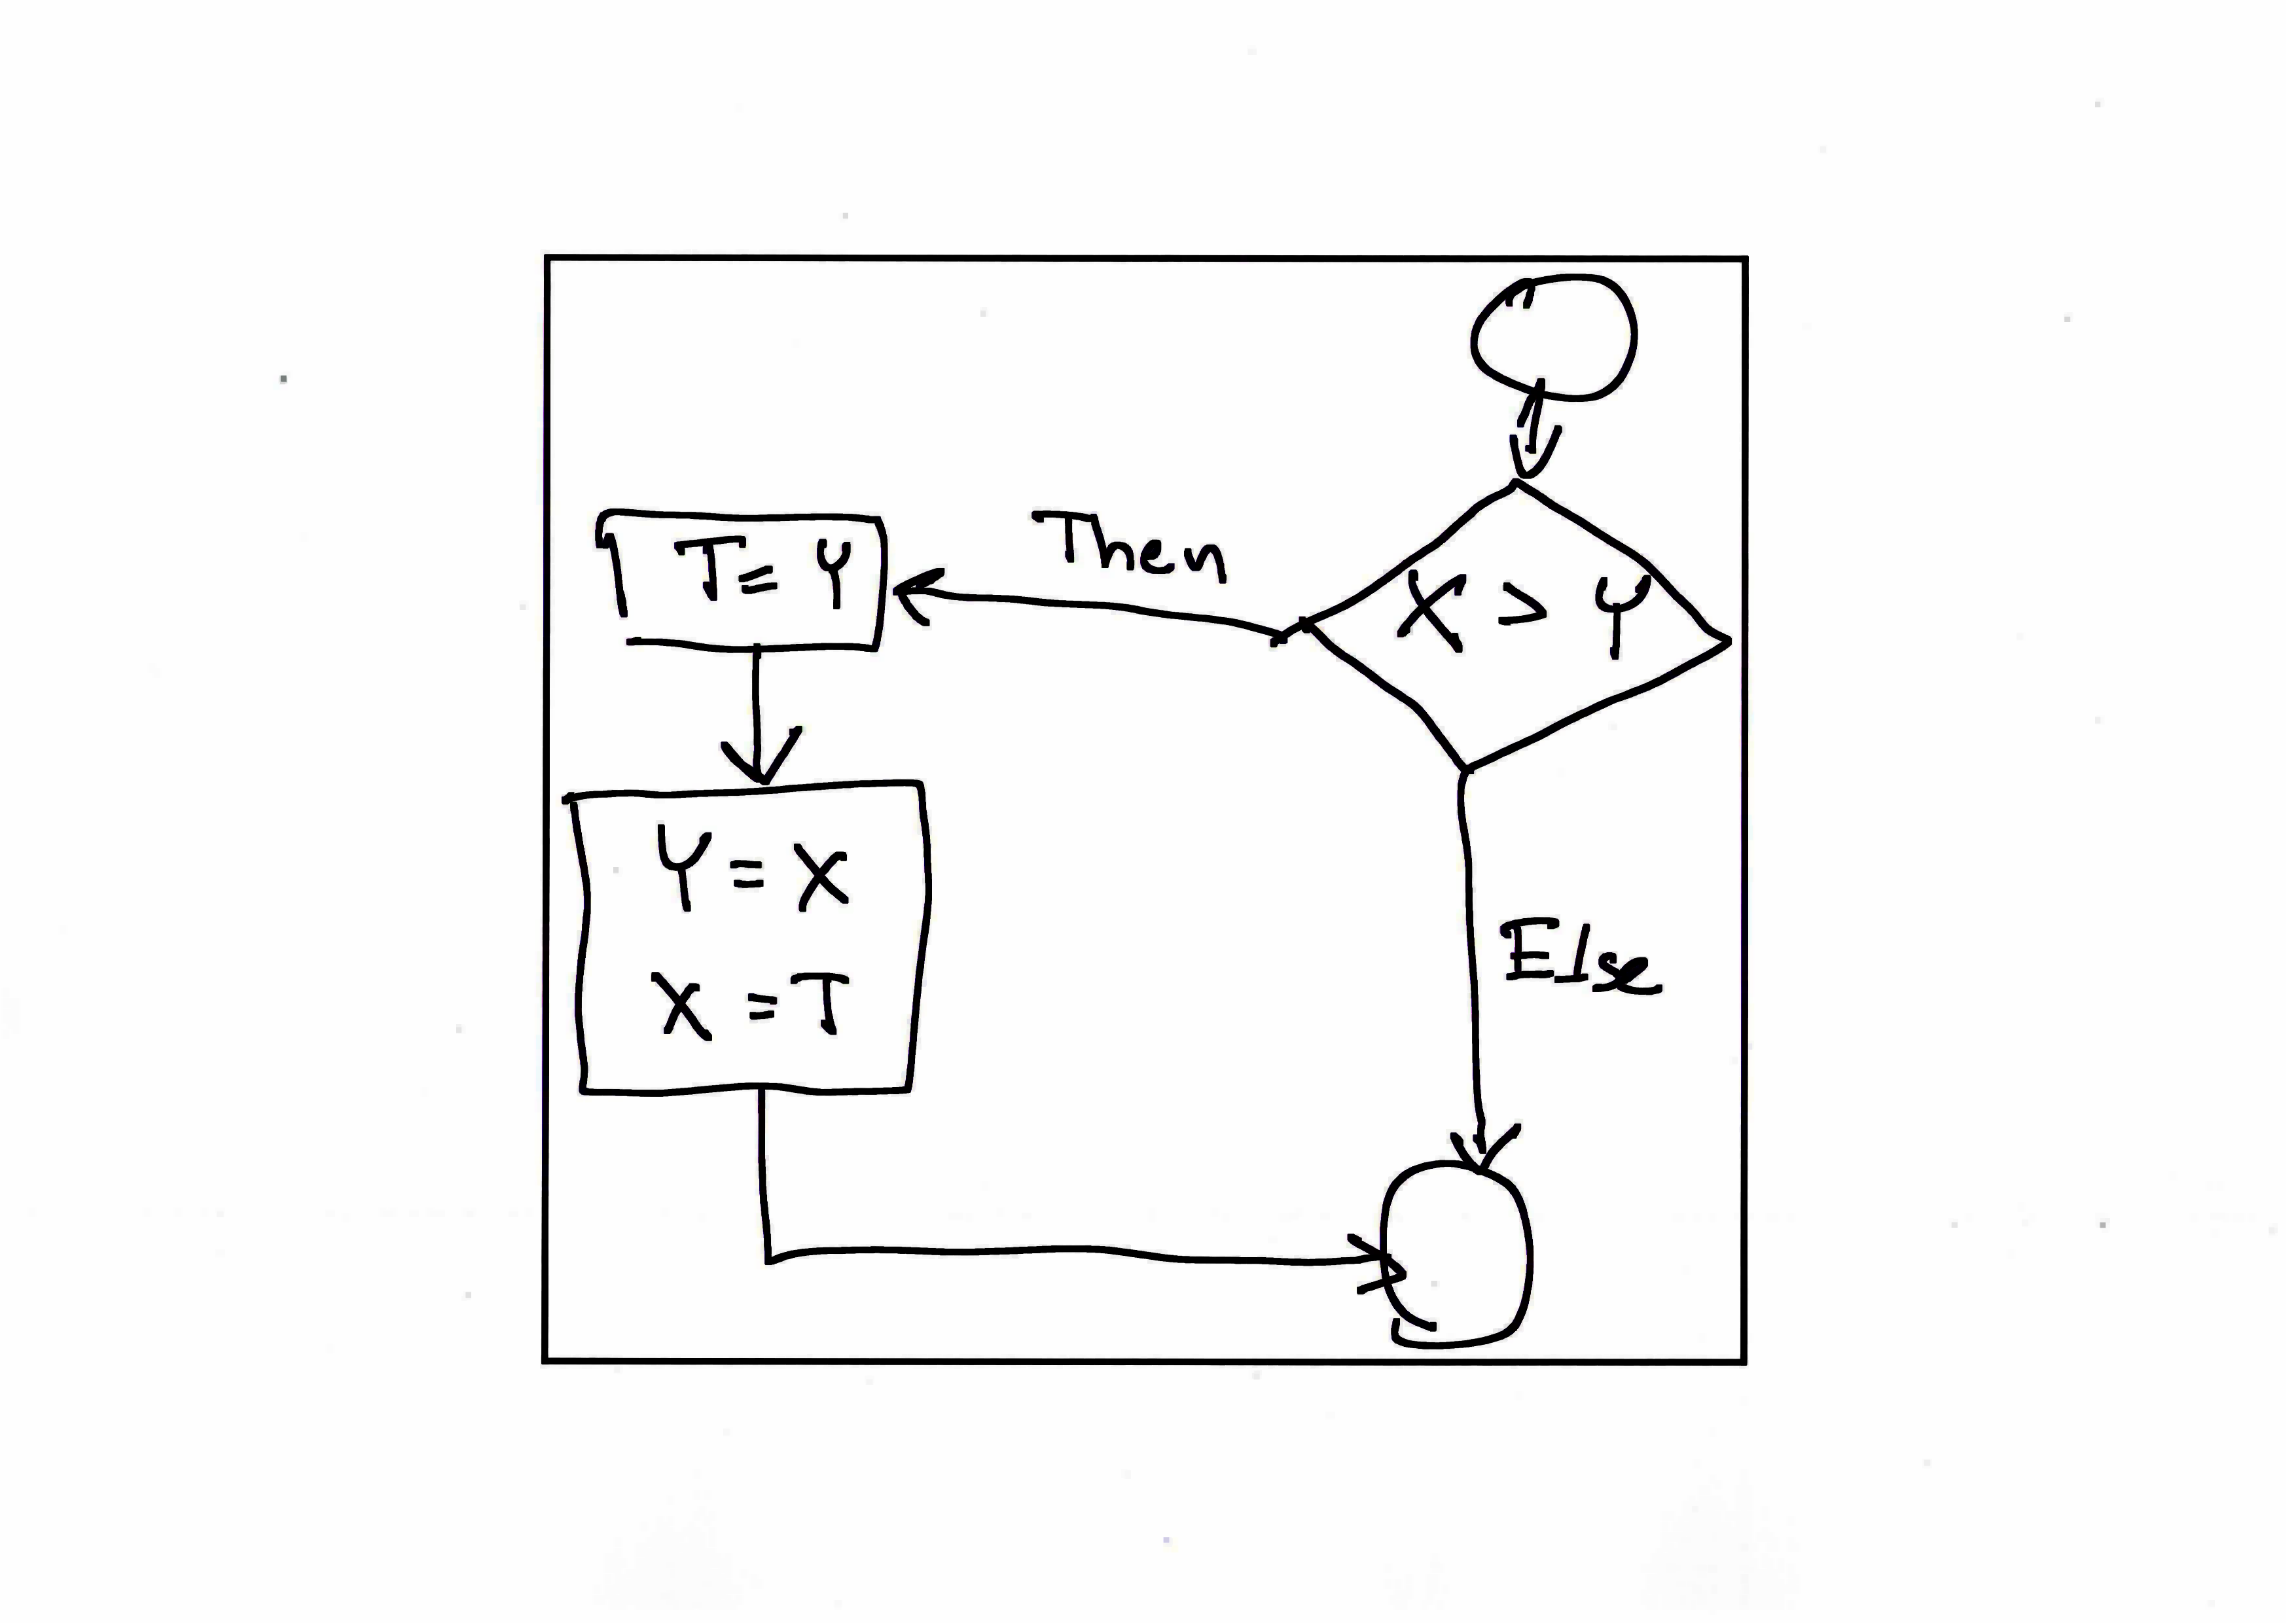 X > Y
Then
T = Y
Y = X
X = T
Else